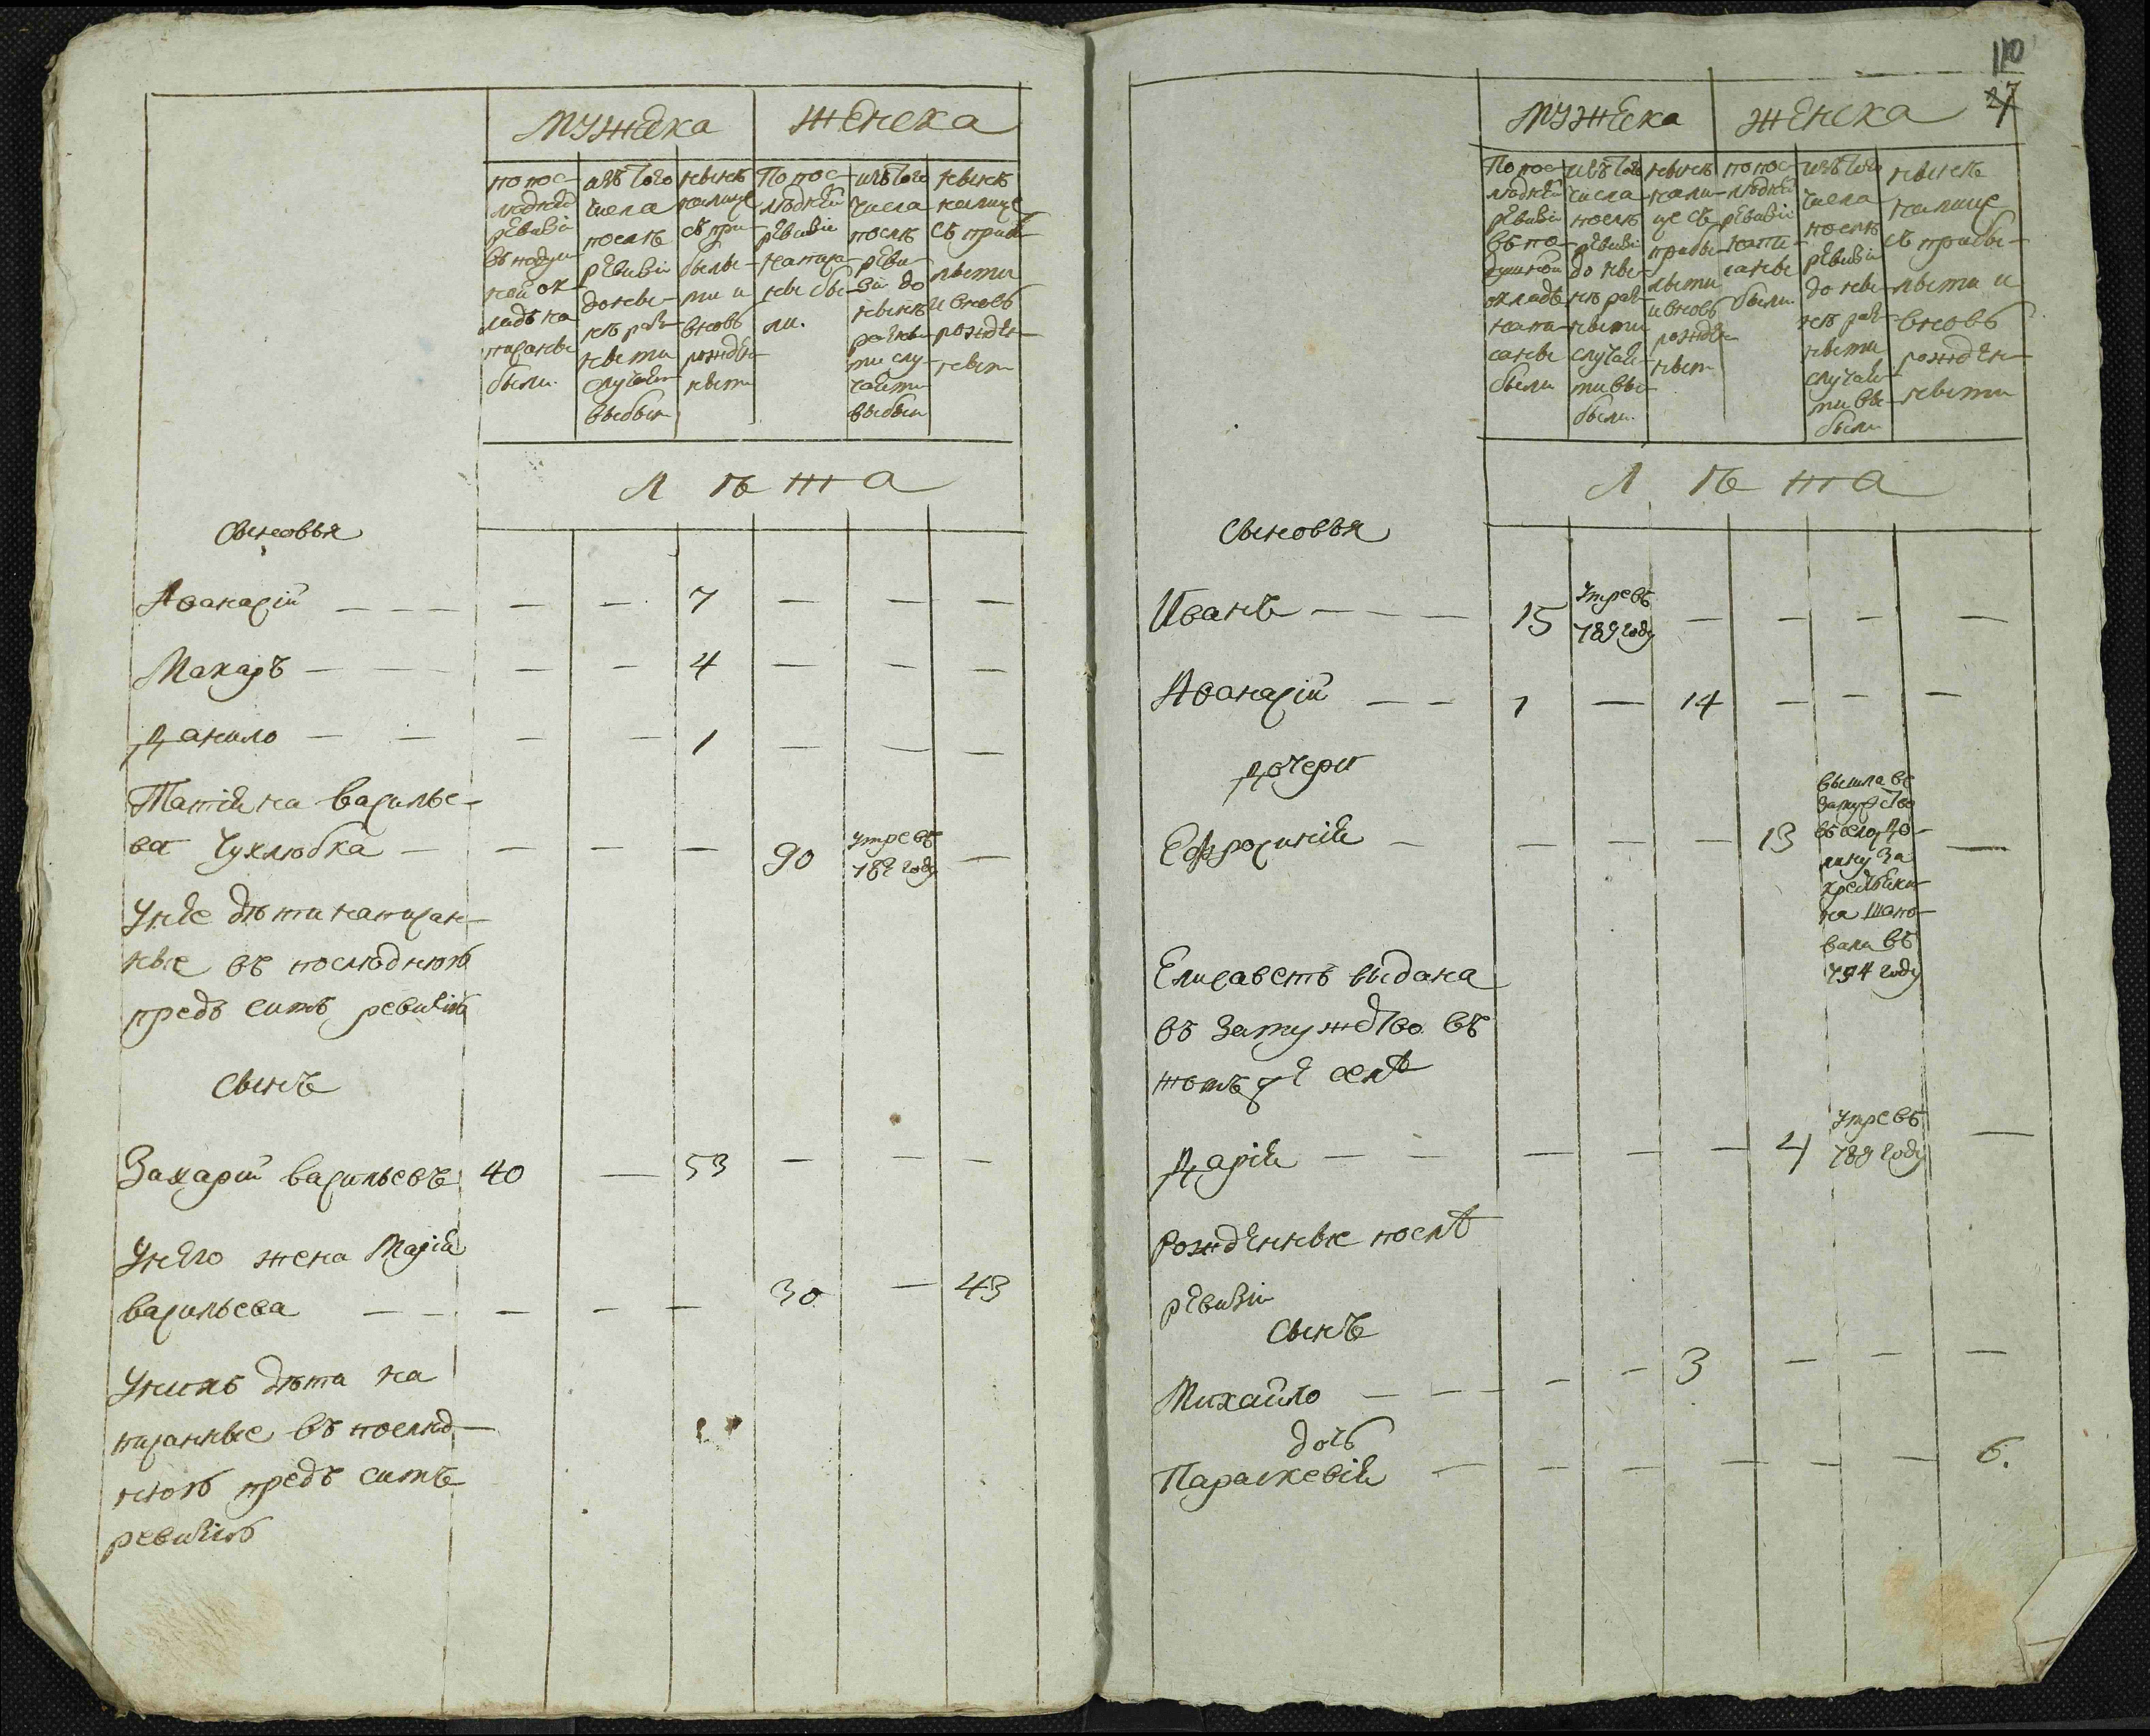 мужеска
женска
по пос-
лѣдней
ревизіи
въ подуш-
ной ок
ладъ на
писаны
были
изъ того
числа
послѣ
ревизіи
до ны-
нѣ раз-
ными
случаями
выбыли
нынѣ
налице
съ при-
былы-
ми и
вновь
рожден-
ными
По пос-
лѣдней
ревизіи
написа-
ны бы-
ли.
изъ того
числа
послѣ
реви-
зіи до
нынѣ
разны-
ми слу-
чаями
выбыли
нынѣ
налице
съ прибы-
лыми
и вновь
рожден-
ными
лѣта
Сыновья
Афанасій — — — — — 7 — — —
Макаръ — — — — 4 — — —
Данило — — — — 1 — — —
Татіяна Василье-
ва Чухлюбка — — — — 90 умре въ 782 году —
У нее дѣти написан-
ные въ послѣднюю
предъ симъ ревизію
Сынъ
Захарій Васильевъ 40 — 53 — — —
У него жена Марія
Васильева — — — — — 30 — 43
У нихъ дѣти на
писанные въ послѣд-
нюю предъ симъ
ревизію
110
27
мужеска
женска
По пос-
лѣдней
ревизіи
въ по-
душной
окладъ
напи-
саны
были
изъ того
числа
послѣ
ревизіи
до ны-
нѣ раз-
ными
случая-
ми вы-
были.
нынѣ
нали-
це съ
прибы-
лыми
и вновь
рожден-
ными
по пос-
лѣдней
ревизіи
напи-
саны
были
изъ того
числа
послѣ
ревизіи
до ны-
нѣ раз-
ными
случая-
ми вы-
были
нынѣ
налице
съ прибы-
лыми и
вновь
рожден-
ными
лѣта
Сыновья
Иванъ — — — 15 умре въ 789 году — — — —
Афанасій — — 1 — 14 — — —
дочери
Ефросинія — — — — 13 вышла въ
замужство
въ село До-
лину за
крестьяни-
на Шапо-
вала въ
794 году —
Елисаветъ выдана
въ замуждство въ
томъ же селѣ
Дарія — — — — — 4 умре въ 789 году —
Рожденные послѣ
ревизіи
Сынъ
Михайло — — — — — 3 — — —
дочь
Параскевія — — — — — — 6.